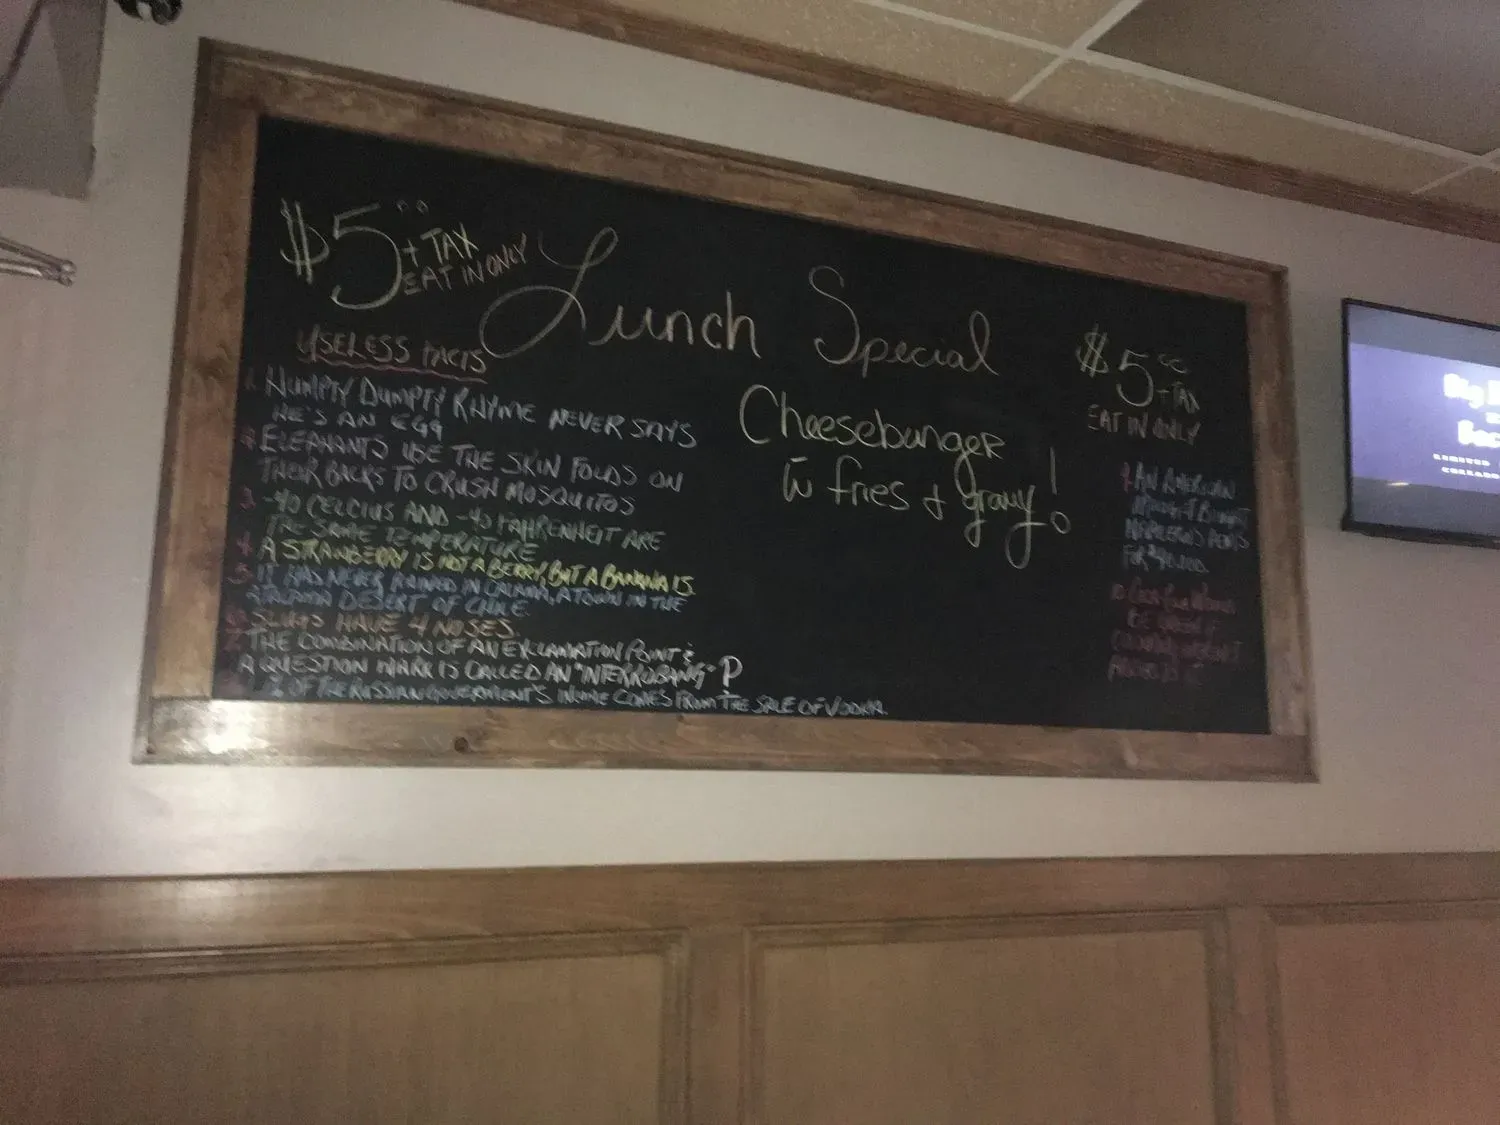 $5.00 + TAX
EAT IN ONLY
Lunch Special
Cheeseburger
w fries + gravy!
$5.00 + TAX
EAT IN ONLY
USELESS FACTS
1. HUMPTY DUMPTY RHYME NEVER SAYS
HE'S AN EGG
2. ELEPHANTS USE THE SKIN FOLDS ON
THEIR BACKS TO CRUSH MOSQUITOS
3. -40 CELCIUS AND -40 FAHRENHEIT ARE
THE SAME TEMPERATURE
4. A STRAWBERRY IS NOT A BERRY, BUT A BANANA IS.
5. IT HAS NEVER RAINED IN CALAMA, A TOWN IN THE
ATACAMA DESERT OF CHILE.
6. SLUGS HAVE 4 NOSES.
7. THE COMBINATION OF AN EXCLAMATION POINT &
A QUESTION MARK IS CALLED AN "INTERROBANG"
% OF THE RUSSIAN GOVERMENT'S INCOME COMES FROM THE SALE OF VODKA.
AN AMERICAN
BOUGHT
NAPOLEON'S PENIS
FOR $40,000
10.
Big
Bac
LIMITED